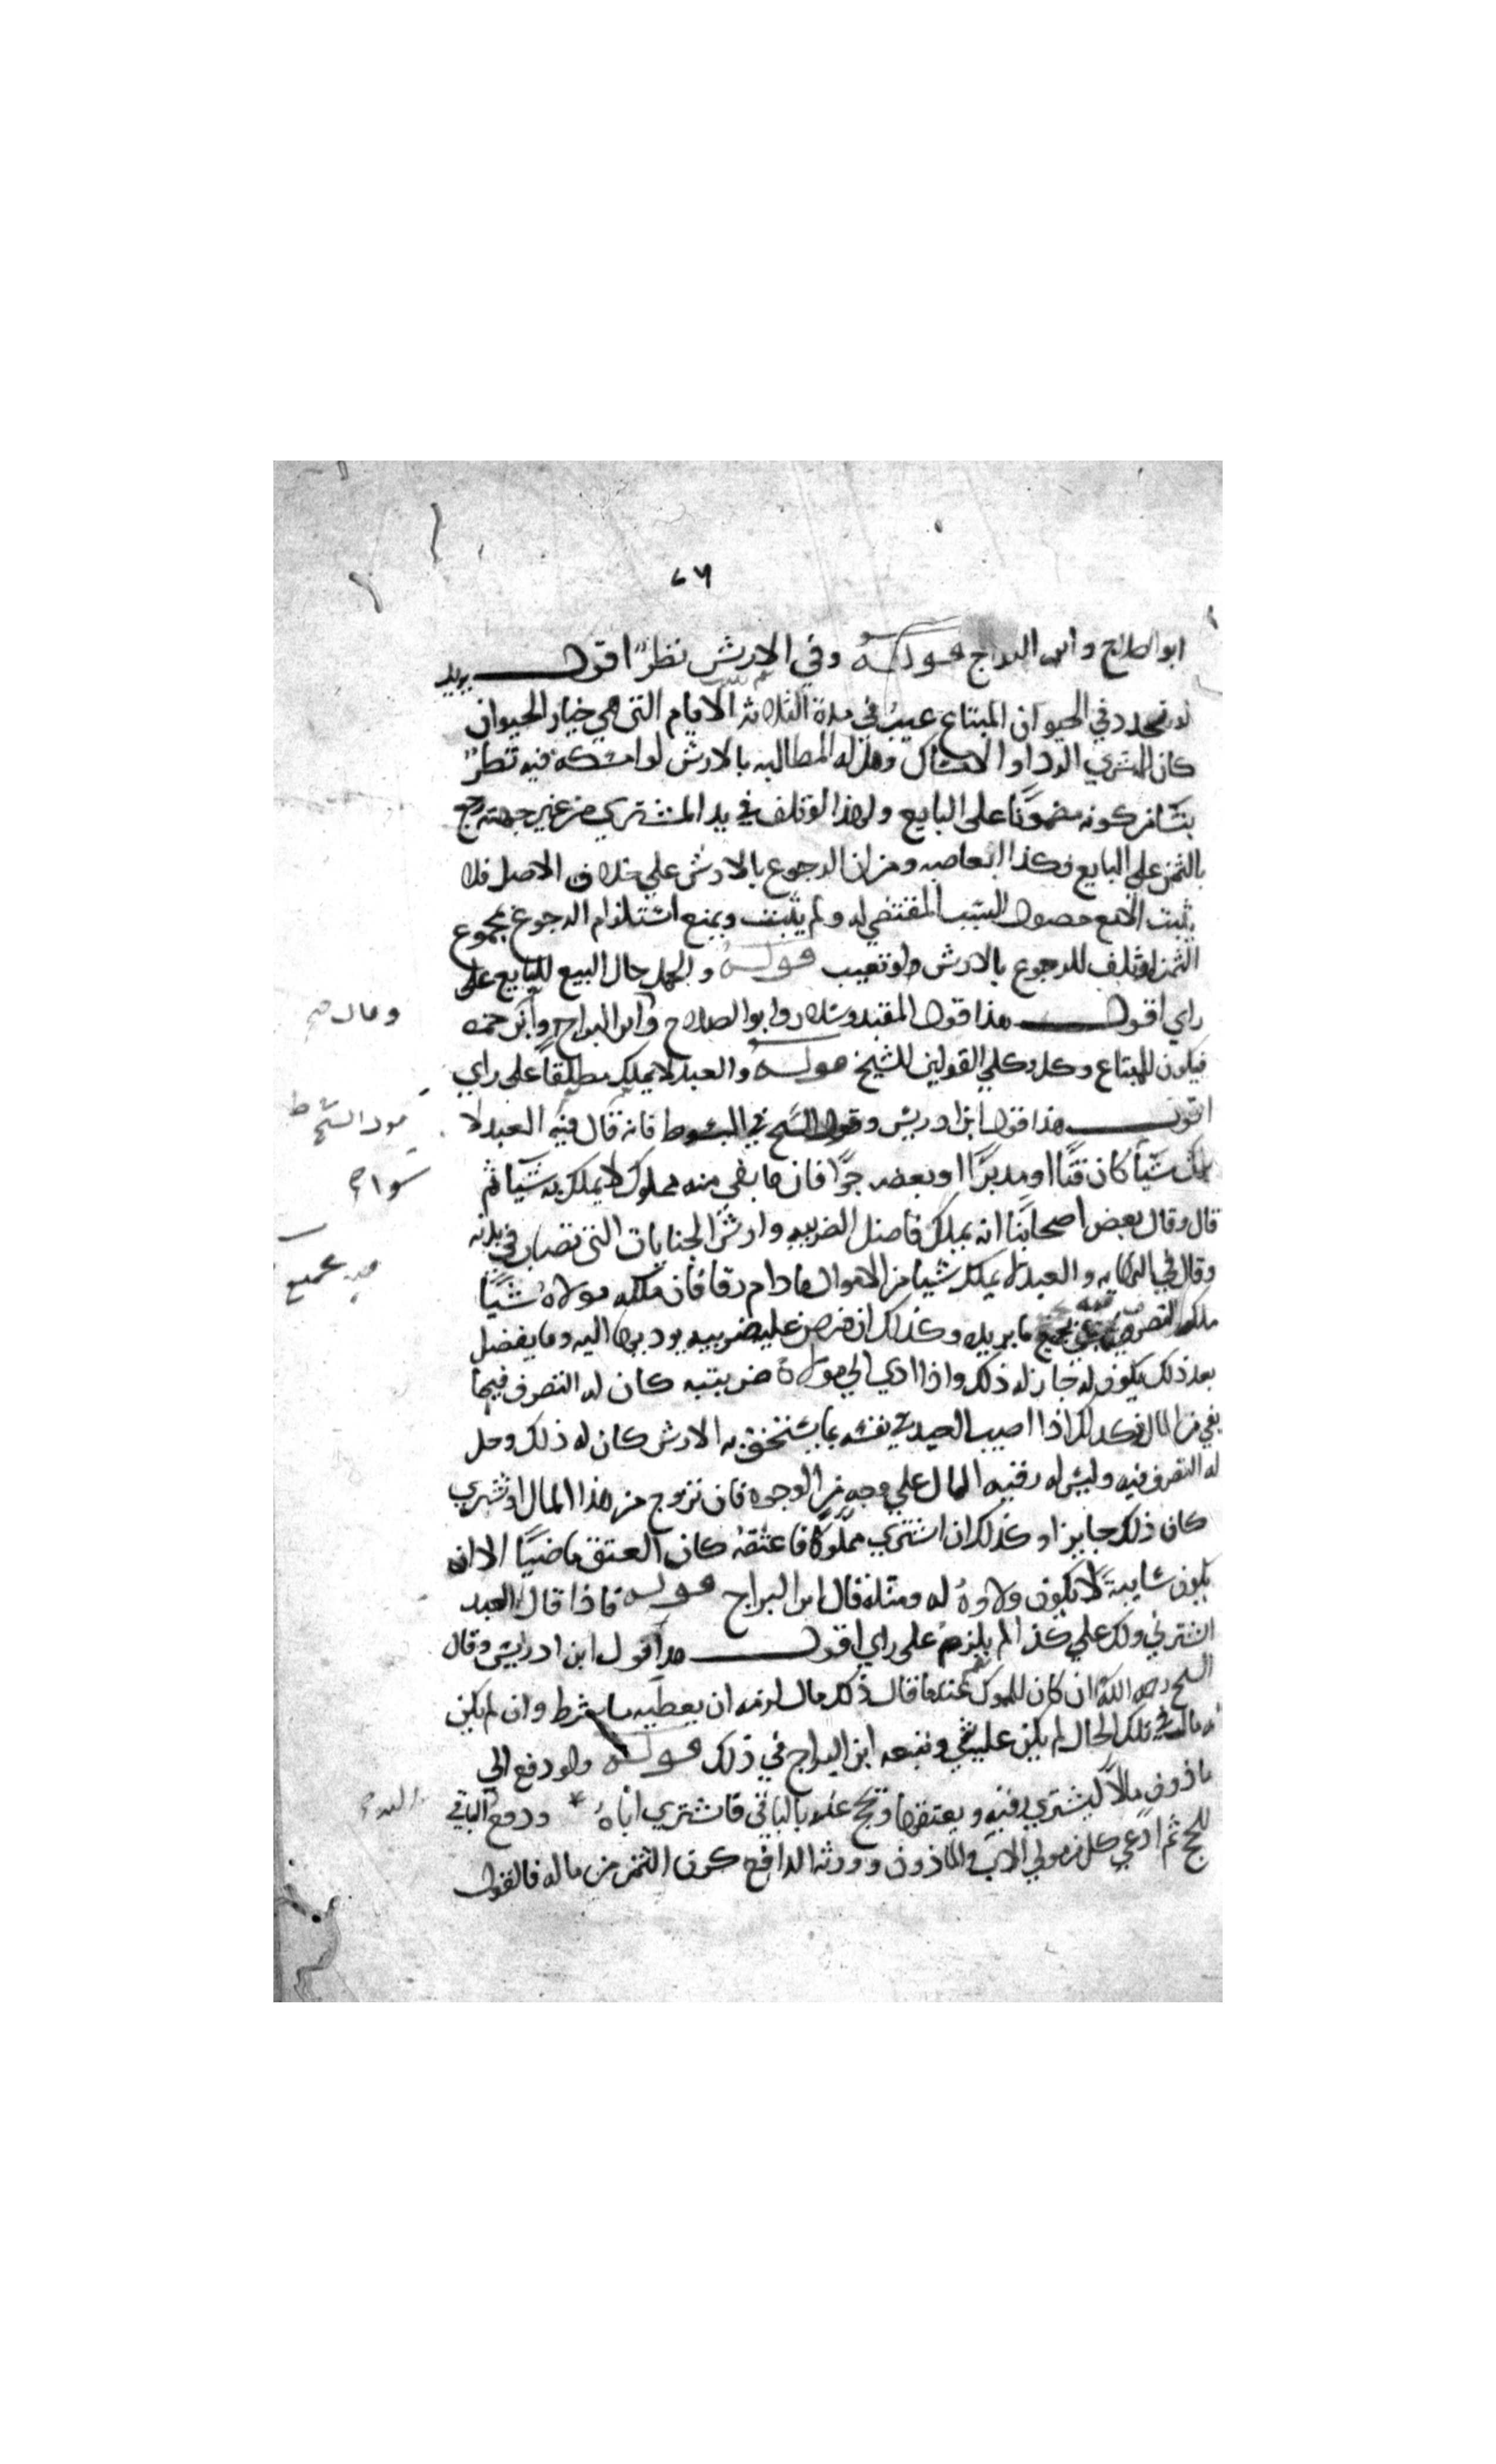 ٧٦
ابو الصلاح وابن البراج قوله وفي الارش نظر اقول يريد
لو تجدد في الحيوان المبتاع عيب في مدة الثلاثة الايام التي هي خيار الحيوان
كان للمشتري الرد او الامساك وهل له المطالبه بالارش لو امسكه فيه نظر
ينشا من كونه مضمونا على البايع ولهذا لو تلف في يد المشتري من غير جهته رجع
بالثمن على البايع وكذا ابعاضه ومن ان الرجوع بالارش على خلاف الاصل فلا
يثبت الا مع حصول السبب المقتضي له ولم يثبت ويمنع استلزام الرجوع بمجموع
الثمن لو تلف للرجوع بالارش ولو تعيب قوله والحمل حال البيع للبايع على
راي اقول هذا قول المفيد وسلار وابو الصلاح وابن البراج وابن حمزه
فيكون للمبتاع وكل وكلي القولين للشيخ قوله والعبد لا يملك مطلقا على راي
اقول هذا قول ابن ادريس وقول الشيخ في المبسوط فانه قال فيه العبد لا
يملك شيا كان قنا او مدبرا او بعضه حرا فان ما بقي منه مملوك لا يملك به شيا ثم
قال وقال بعض اصحابنا انه يملك فاضل الضريبه وارش الجنايات التي تصاب في بدنه
وقال في النهايه والعبد لا يملك شيا من الاموال مادام رقا فان ملكه مولاه شيا
ملك التصرف فيه بجميع ما يريده وكذلك ان فرض عليه ضريبه يوديها اليه وما يفضل
بعد ذلك يكون له جاز له ذلك واذا ادي الى مولاه ضريبته كان له التصرف فيما
بقي من المال وكذلك اذا اصيب العبد في نفسه بما يستحق به الارش كان له ذلك وحل
له التصرف فيه وليس له رقبه المال على وجه من الوجوه فان تزوج من هذا المال او تشري
كان ذلك جايزا وكذلك ان اشتري مملوكا فاعتقه كان العتق ماضيا الا انه
يكون سايبة لا يكون ولاوه له ومثله قال ابن البراج قوله فاذا قال العبد
اشترني ولك علي كذا لم يلزم على راي اقول هذا قول ابن ادريس وقال
الشيخ رحمه الله ان كان للمملوك عندما قال ذلك مال لزمه ان يعطيه ما شرط وان لم يكن
له مال في تلك الحال لم يكن عليه شي وتبعه ابن البراج في ذلك قوله ولو دفع الي
ماذون مالا ليشتري رقبه ويعتقها ويحج عنه بالباقي فاشتري اباه ودفع الباقي
للحج ثم ادعي كل من مولي الاب والماذون وورثه الدافع كون الثمن من ماله فالقول
وقال صح